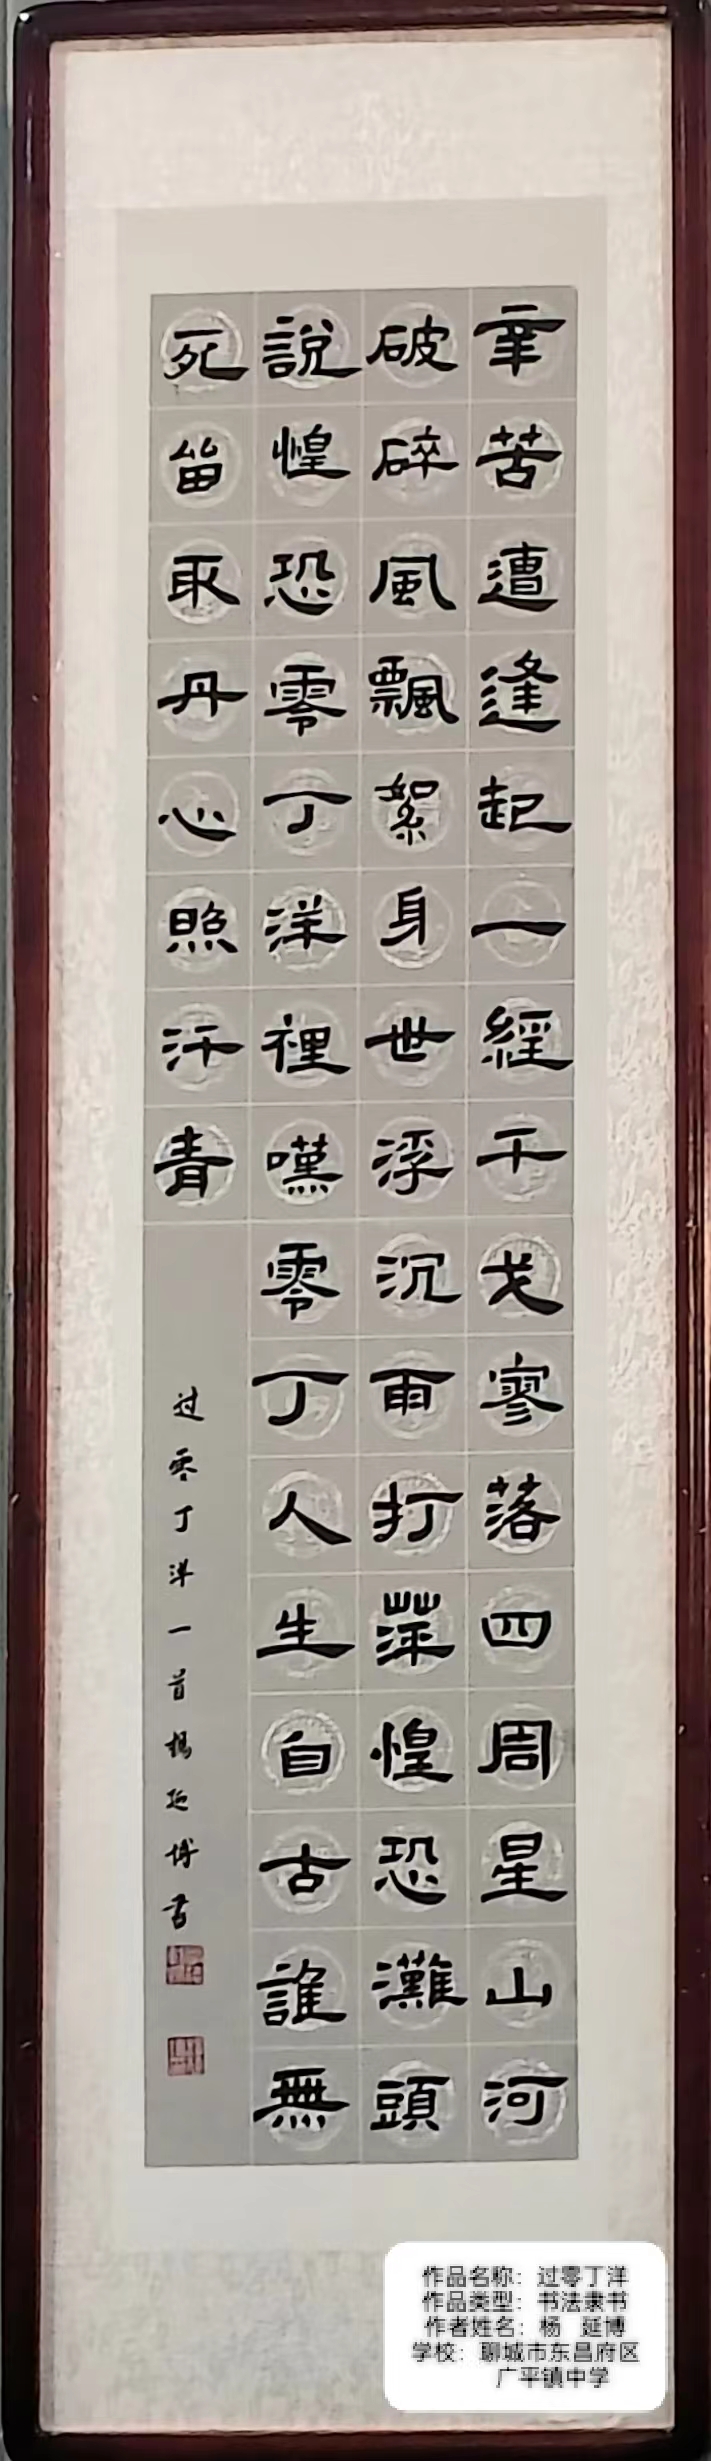 辛苦遭逢起一經干戈寥落四周星山河
破碎風飄絮身世浮沉雨打萍惶恐灘頭
說惶恐零丁洋裡嘆零丁人生自古誰無
死留取丹心照汗青
过零丁洋一首楊延博書
作品名称：过零丁洋
作品类型：书法隶书
作者姓名：杨 延博
学校：聊城市东昌府区
广平镇中学